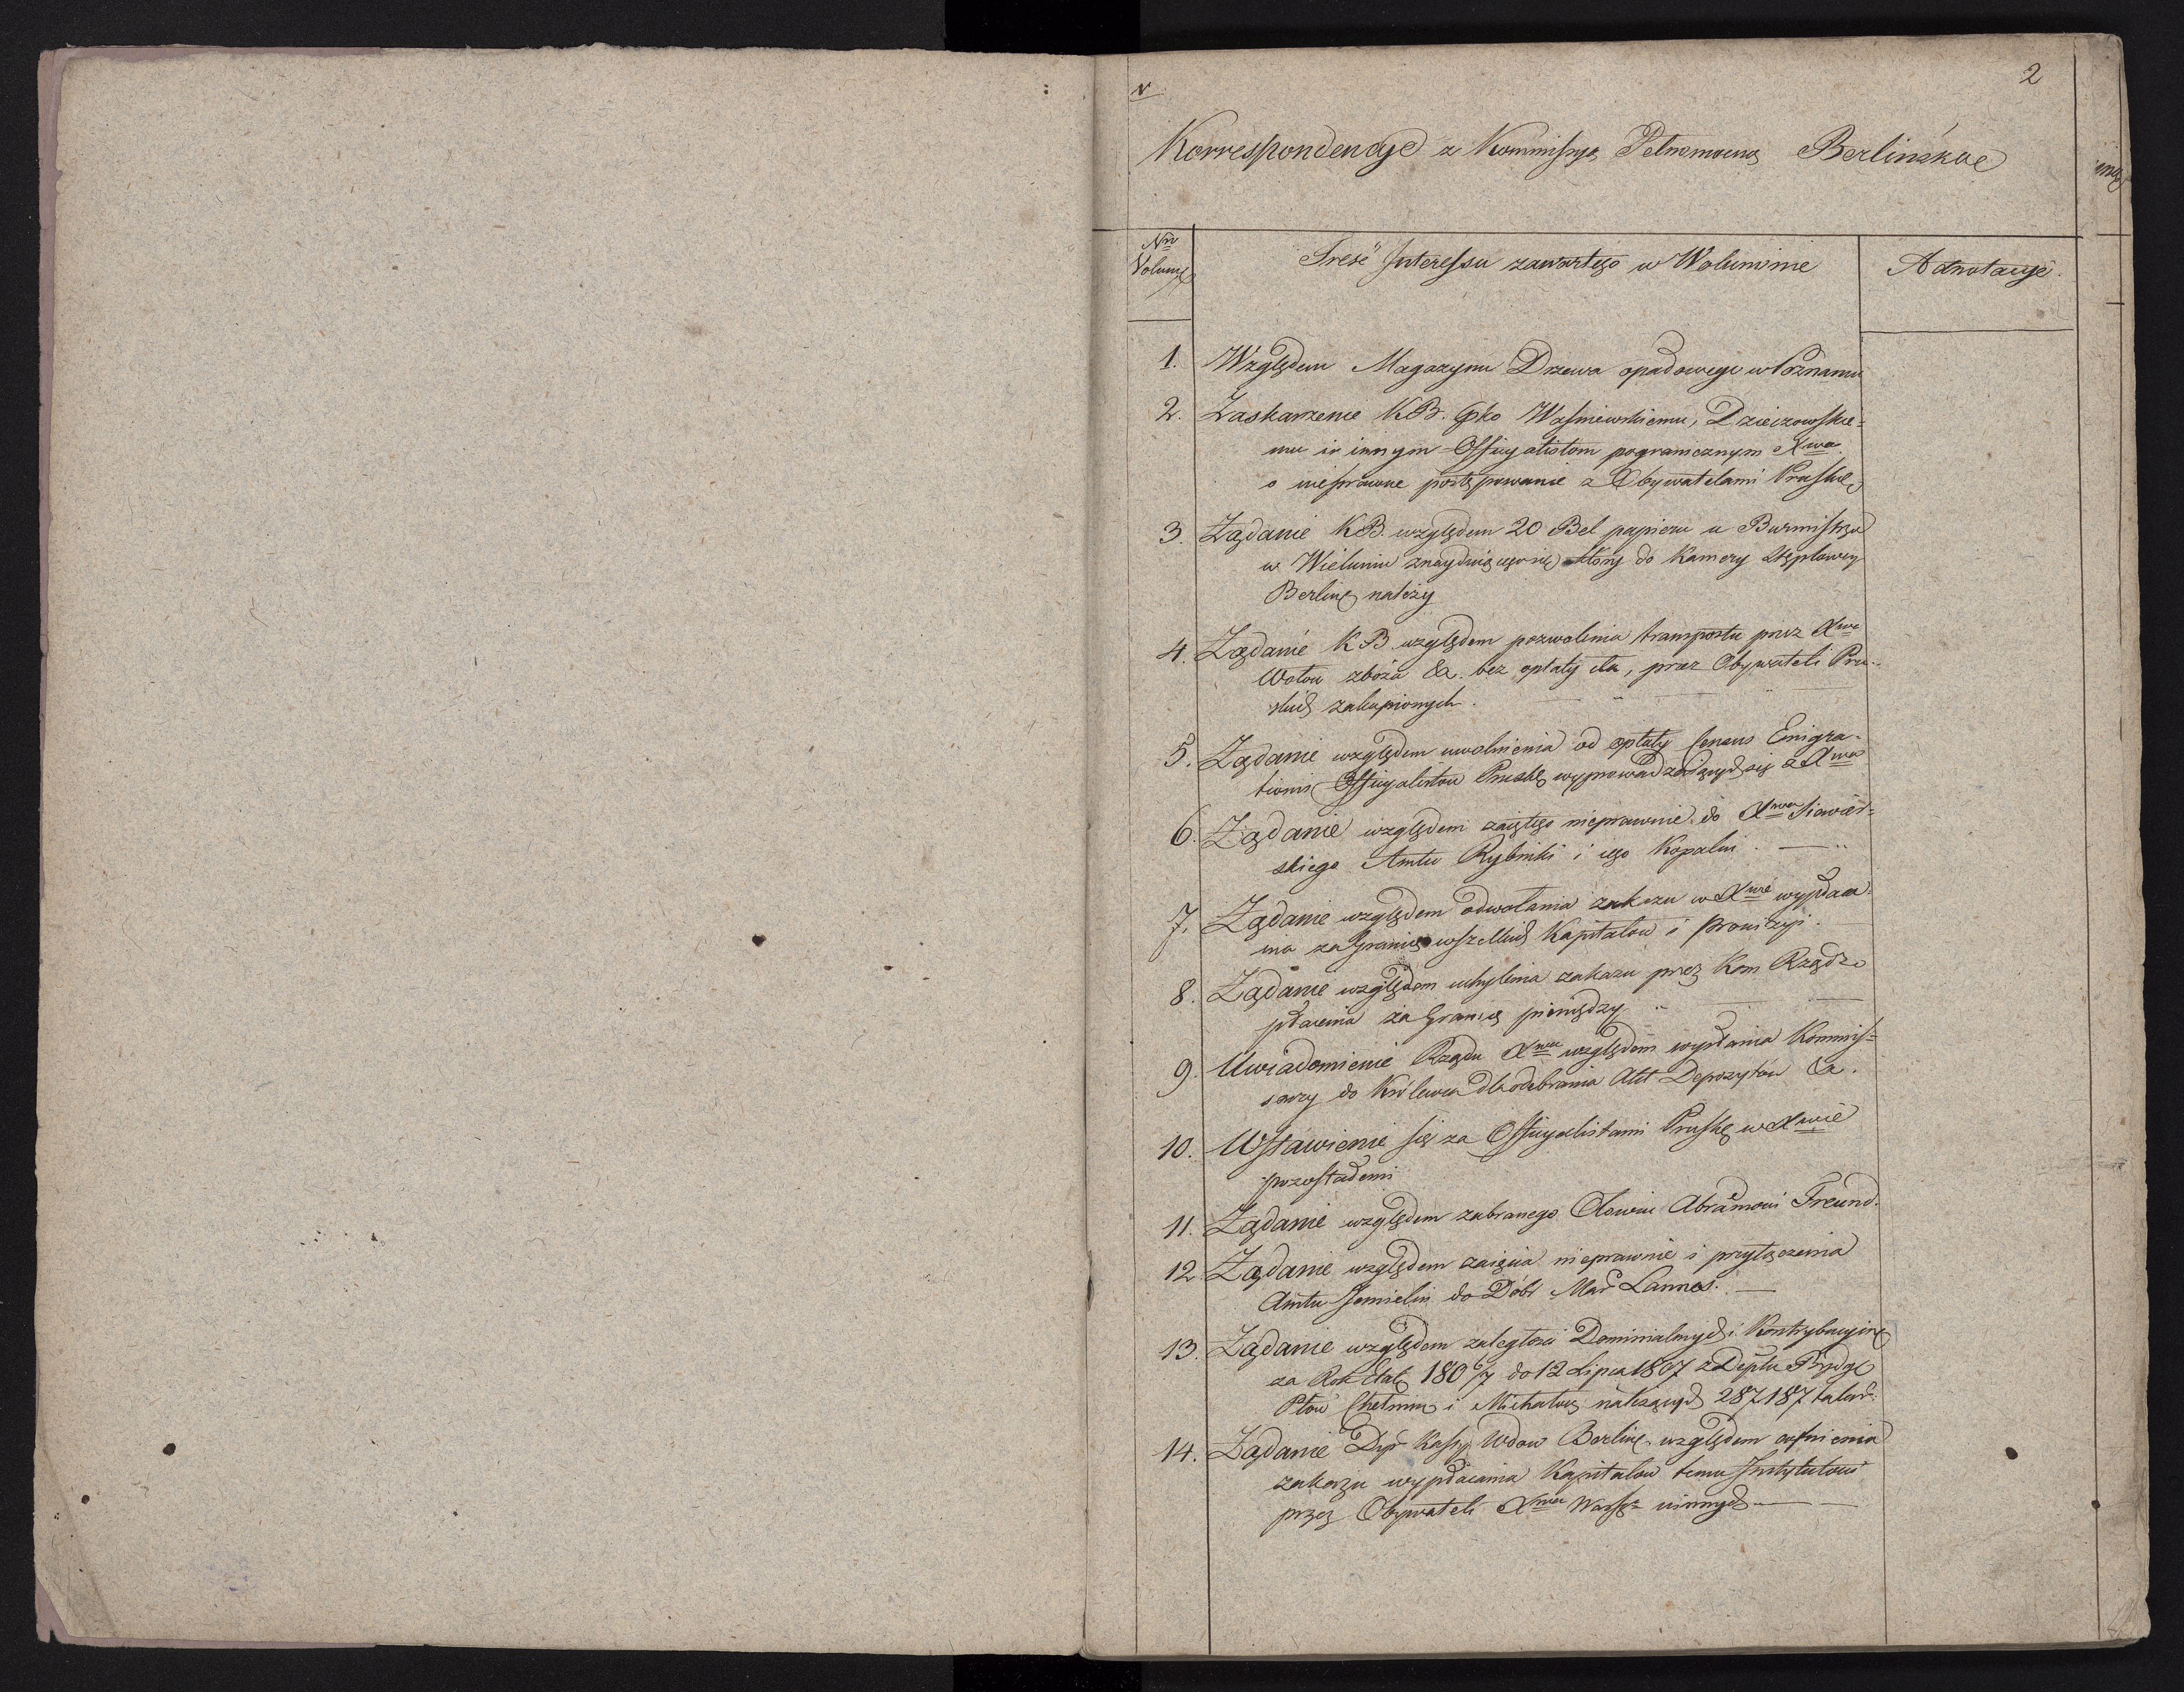 2
Korrespondencye z Kommissyą Pełnomocną Berlińską
Nro Volum
Treść Interessu zawartego w Woluminie
Adnotacye.
1. Względem Magazynu Drzewa opałowego w Poznaniu
2. Zaskarzenie KB. Wasniewskiemu, Dzieczowskie=
mu i innym Officyalistom pogranicznym Xwa
o niesprawne postępowanie z Obywatelami Prusk
3. Żądanie KB. względem 20 Bel papieru u Burmistrza
w Wieluniu znayduiącego się który do Kamery stęplowey
Berlinę należy
4. Żądanie KB. względem pozwolenia transportu przez Xwo
Wołow zboża &a. bez opłaty cła, przez Obywateli Pru-
skich zakupionych.
5. Żądanie względem uwolnienia od opłaty Census Emigra-
tionis Officyalistow Pruskę wyprowadzaiących się z Xwa
6. Żądanie względem zaiętego nieprawnie do Xwa Siewier-
skiego Amtu Rybniki i iego Kopalni.
7. Żądanie względem odwołania zakazu w Xwie wypłaca-
nia za Granicę wszelkich Kapitałow i Prowizyi.
8. Żądanie względem uchylenia zakazu przez Kom Rządz.
płacenia za Granicę pieniędzy
9. Uwiadomienie Rządu Xwa względem wysłania Kommis=
sarzy do Królewca dla odebrania Akt Depozytów &a.
10. Wstawienie się za Officyalistami Pruskę w Xwie
pozostałemi
11. Żądanie względem zabranego Ołowiu Abramowi Freund.
12 Żądanie względem zaięcia nieprawnie i przyłączenia
Amtu Jemielin do Dóbr Mar Lannes.
13. Żądanie względem zaległości Dominialnych i Kontrybucyinę
za Rok Etatę 1806/7 do 12 Lipca 1807 z Deptu Bydgę
Płow Chełmiń i Michałowę należących 287187 talar.
14. Żądanie Dyr Kassy Wdow Berlinę względem cofnienia
zakazu wypłacania Kapitałow temu Instytutowi
przez Obywateli Xwa Warsz winnych